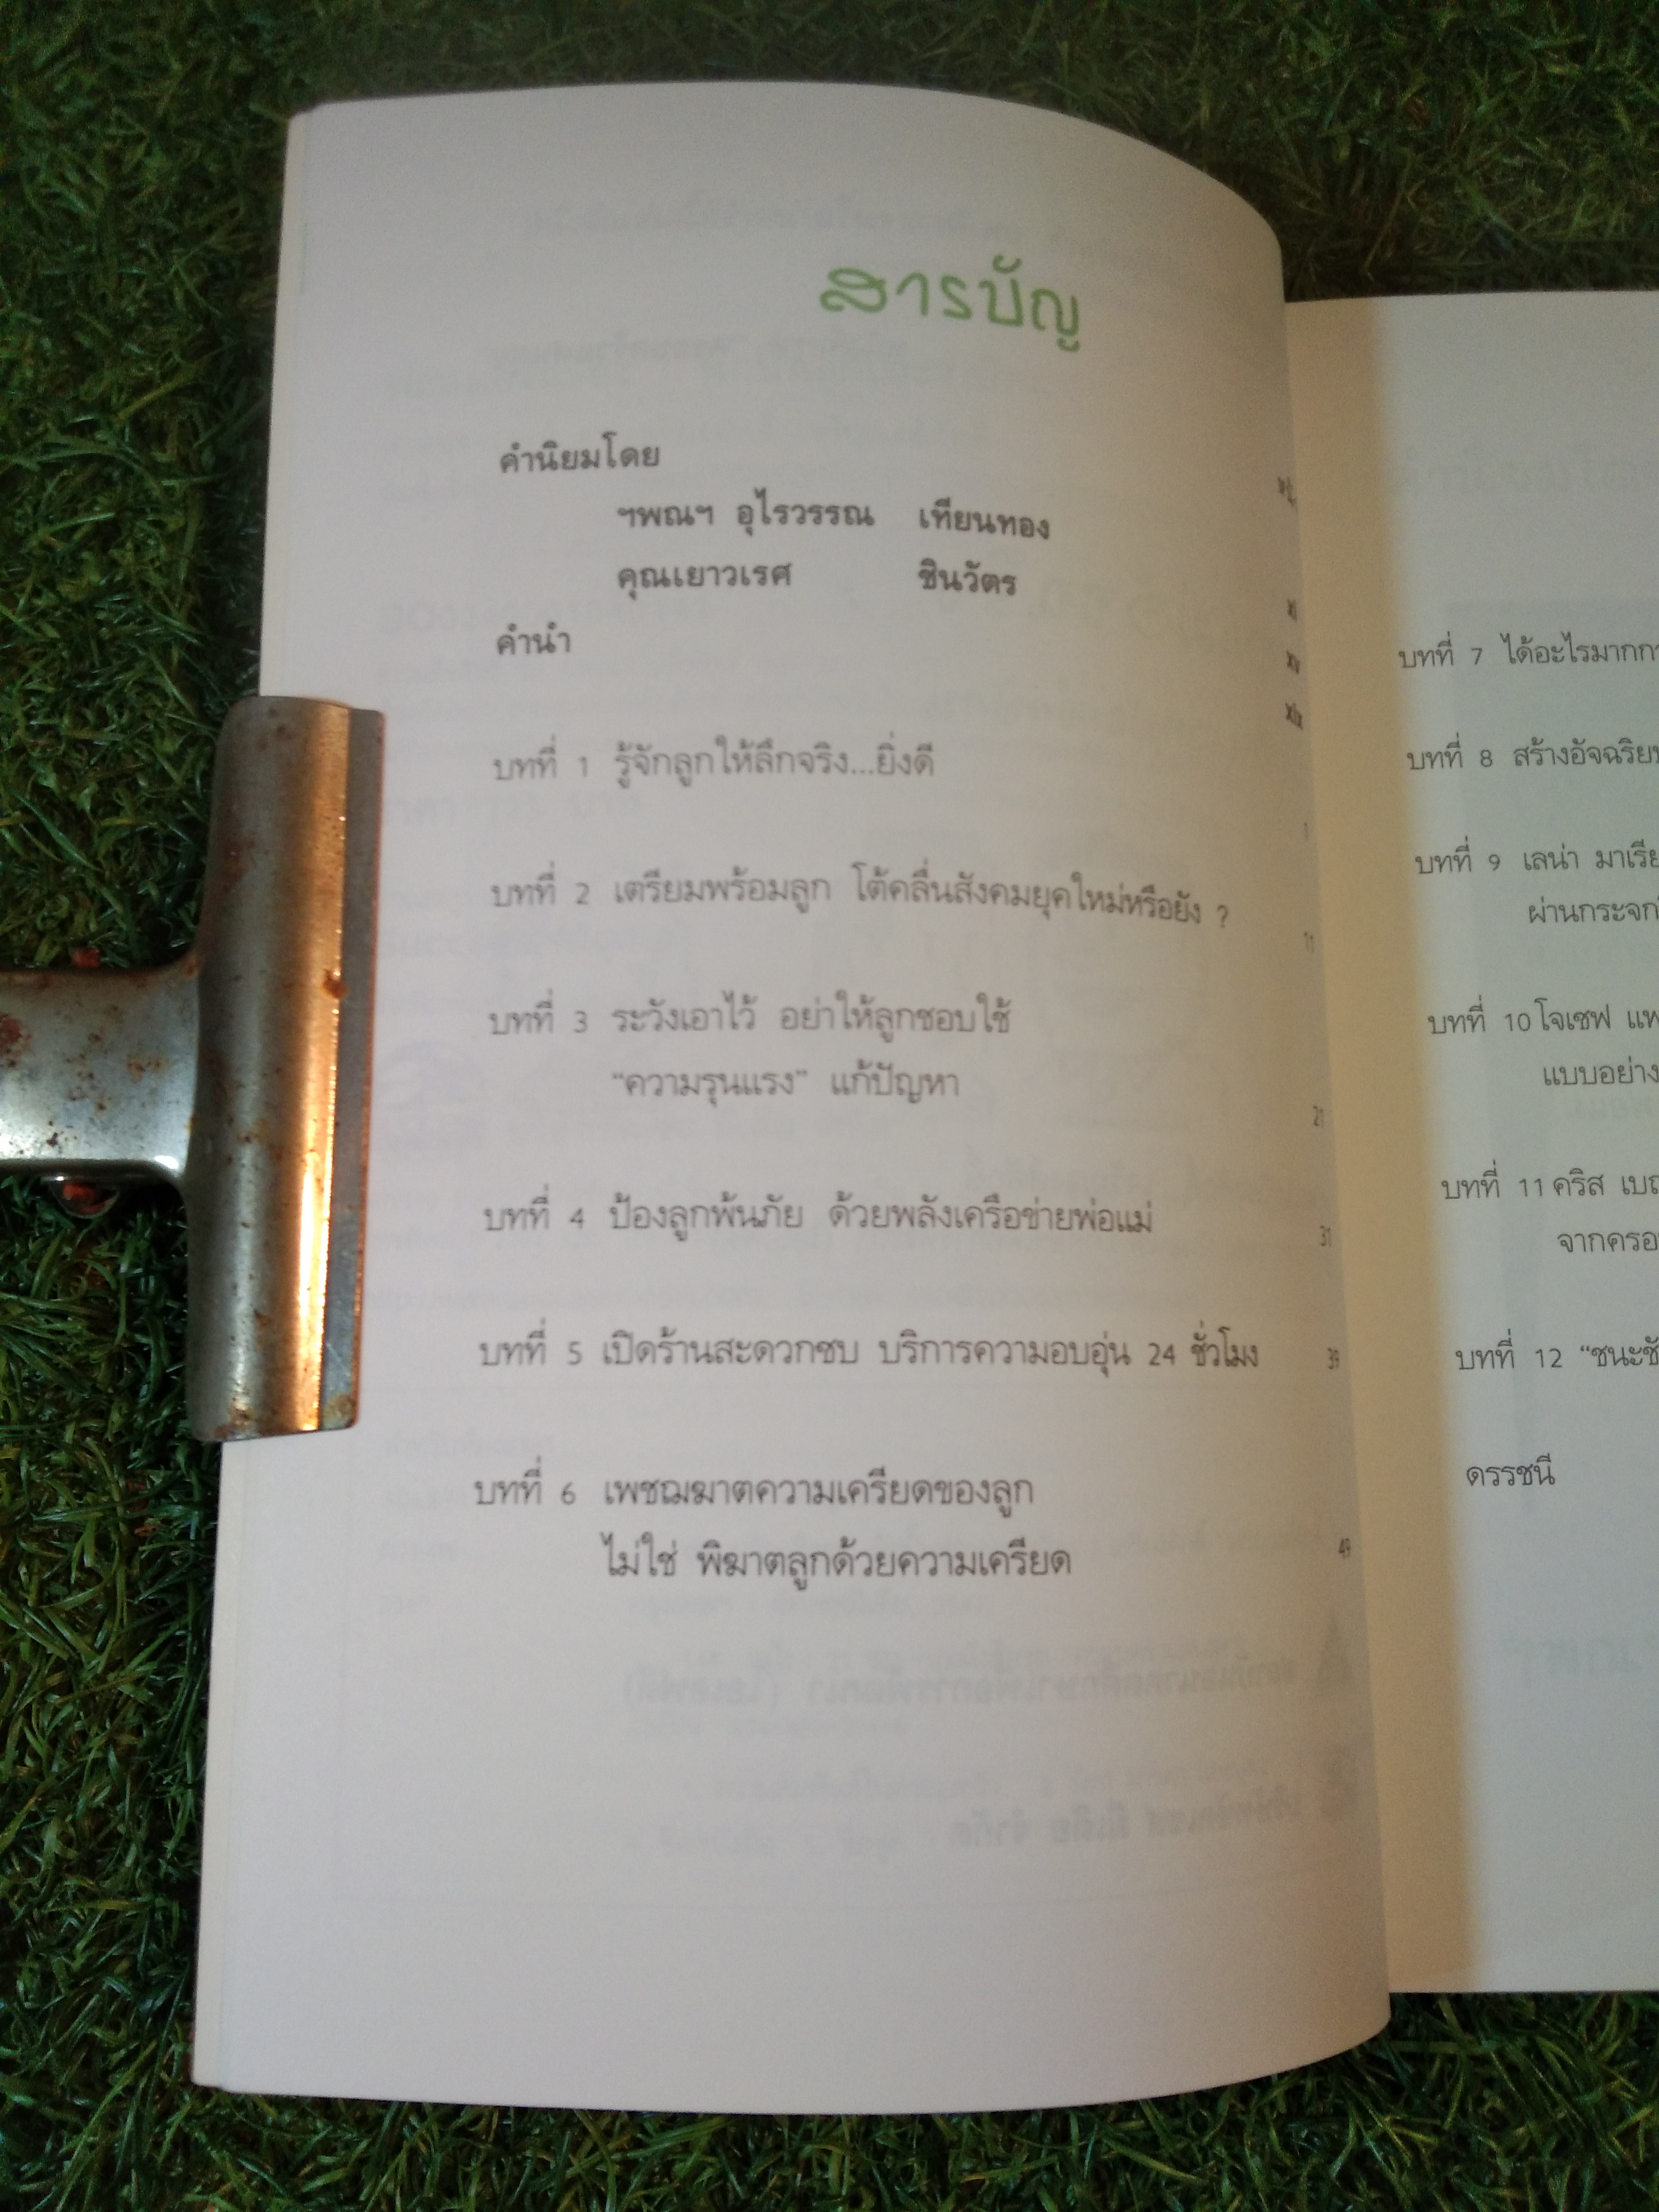 สารบัญ
คำนิยมโดย
ฯพณฯ อุไรวรรณ เทียนทอง
คุณเยาวเรศ ชินวัตร xi
คำนำ xv
xix
บทที่ 1 รู้จักลูกให้ลึกจริง...ยิ่งดี 1
บทที่ 2 เตรียมพร้อมลูก โต้คลื่นสังคมยุคใหม่หรือยัง ? 11
บทที่ 3 ระวังเอาไว้ อย่าให้ลูกชอบใช้
“ความรุนแรง” แก้ปัญหา 21
บทที่ 4 ป้องลูกพ้นภัย ด้วยพลังเครือข่ายพ่อแม่ 31
บทที่ 5 เปิดร้านสะดวกชบ บริการความอบอุ่น 24 ชั่วโมง 39
บทที่ 6 เพชฌฆาตความเครียดของลูก
ไม่ใช่ พิฆาตลูกด้วยความเครียด 49
บทที่ 7 ได้อะไรมากกว
บทที่ 8 สร้างอัจฉริย
บทที่ 9 เลน่า มาเรีย
ผ่านกระจก
บทที่ 10 โจเซฟ แพ
แบบอย่าง
บทที่ 11 คริส เบญ
จากครอ
บทที่ 12 “ชนะชั
ดรรชนี